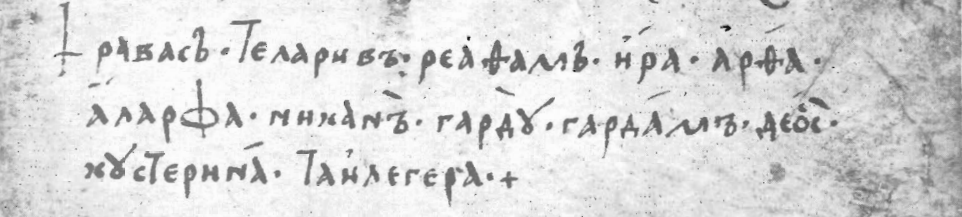 † равасъ · Теларивъ · реаѳамъ · и҆́ра · а҆рѳа ·
а҆ларфа · никанъ · гардꙋ · гарда́мъ · деос ·
хꙋстерина̑ · Таи҆легера · +